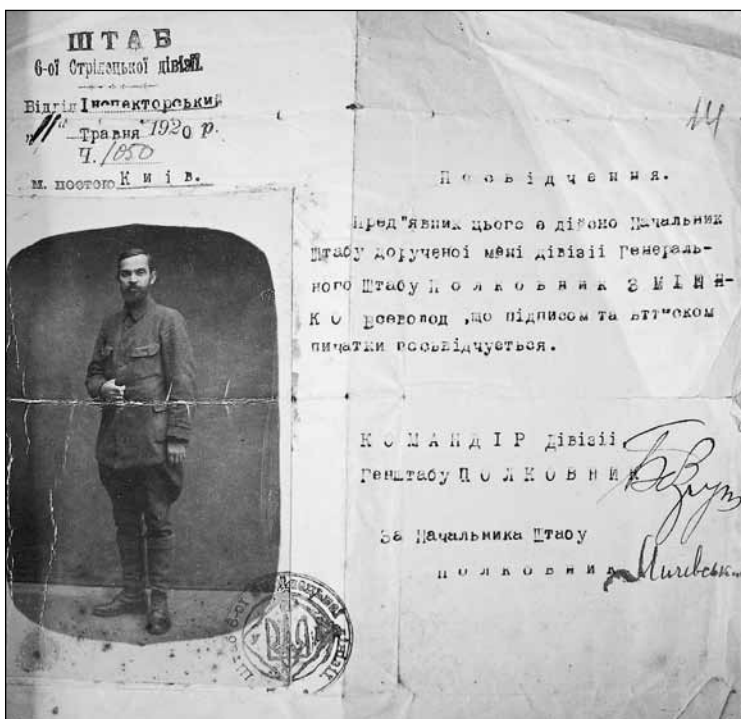 ШТАБ
6-ої Стрілецької дівізії.
Відділ Інспекторський
"11" Травня 1920 р.
Ч. 1050
м. постою Київ.
14
Посвідчення.
Пред"явник цього є дійсно Начальник
Штабу дорученої мені дівізії Генераль-
ного Штабу ПОЛКОВНИК ЗМІЄН-
КО Всеволод ,що підписом та
пичатки посьвідчується.
КОМАНДІР дівізії
Генштабу ПОЛКОВНИК
За Начальника Штабу
ПОЛКОВНИК
Штаб 6-ої дівізії